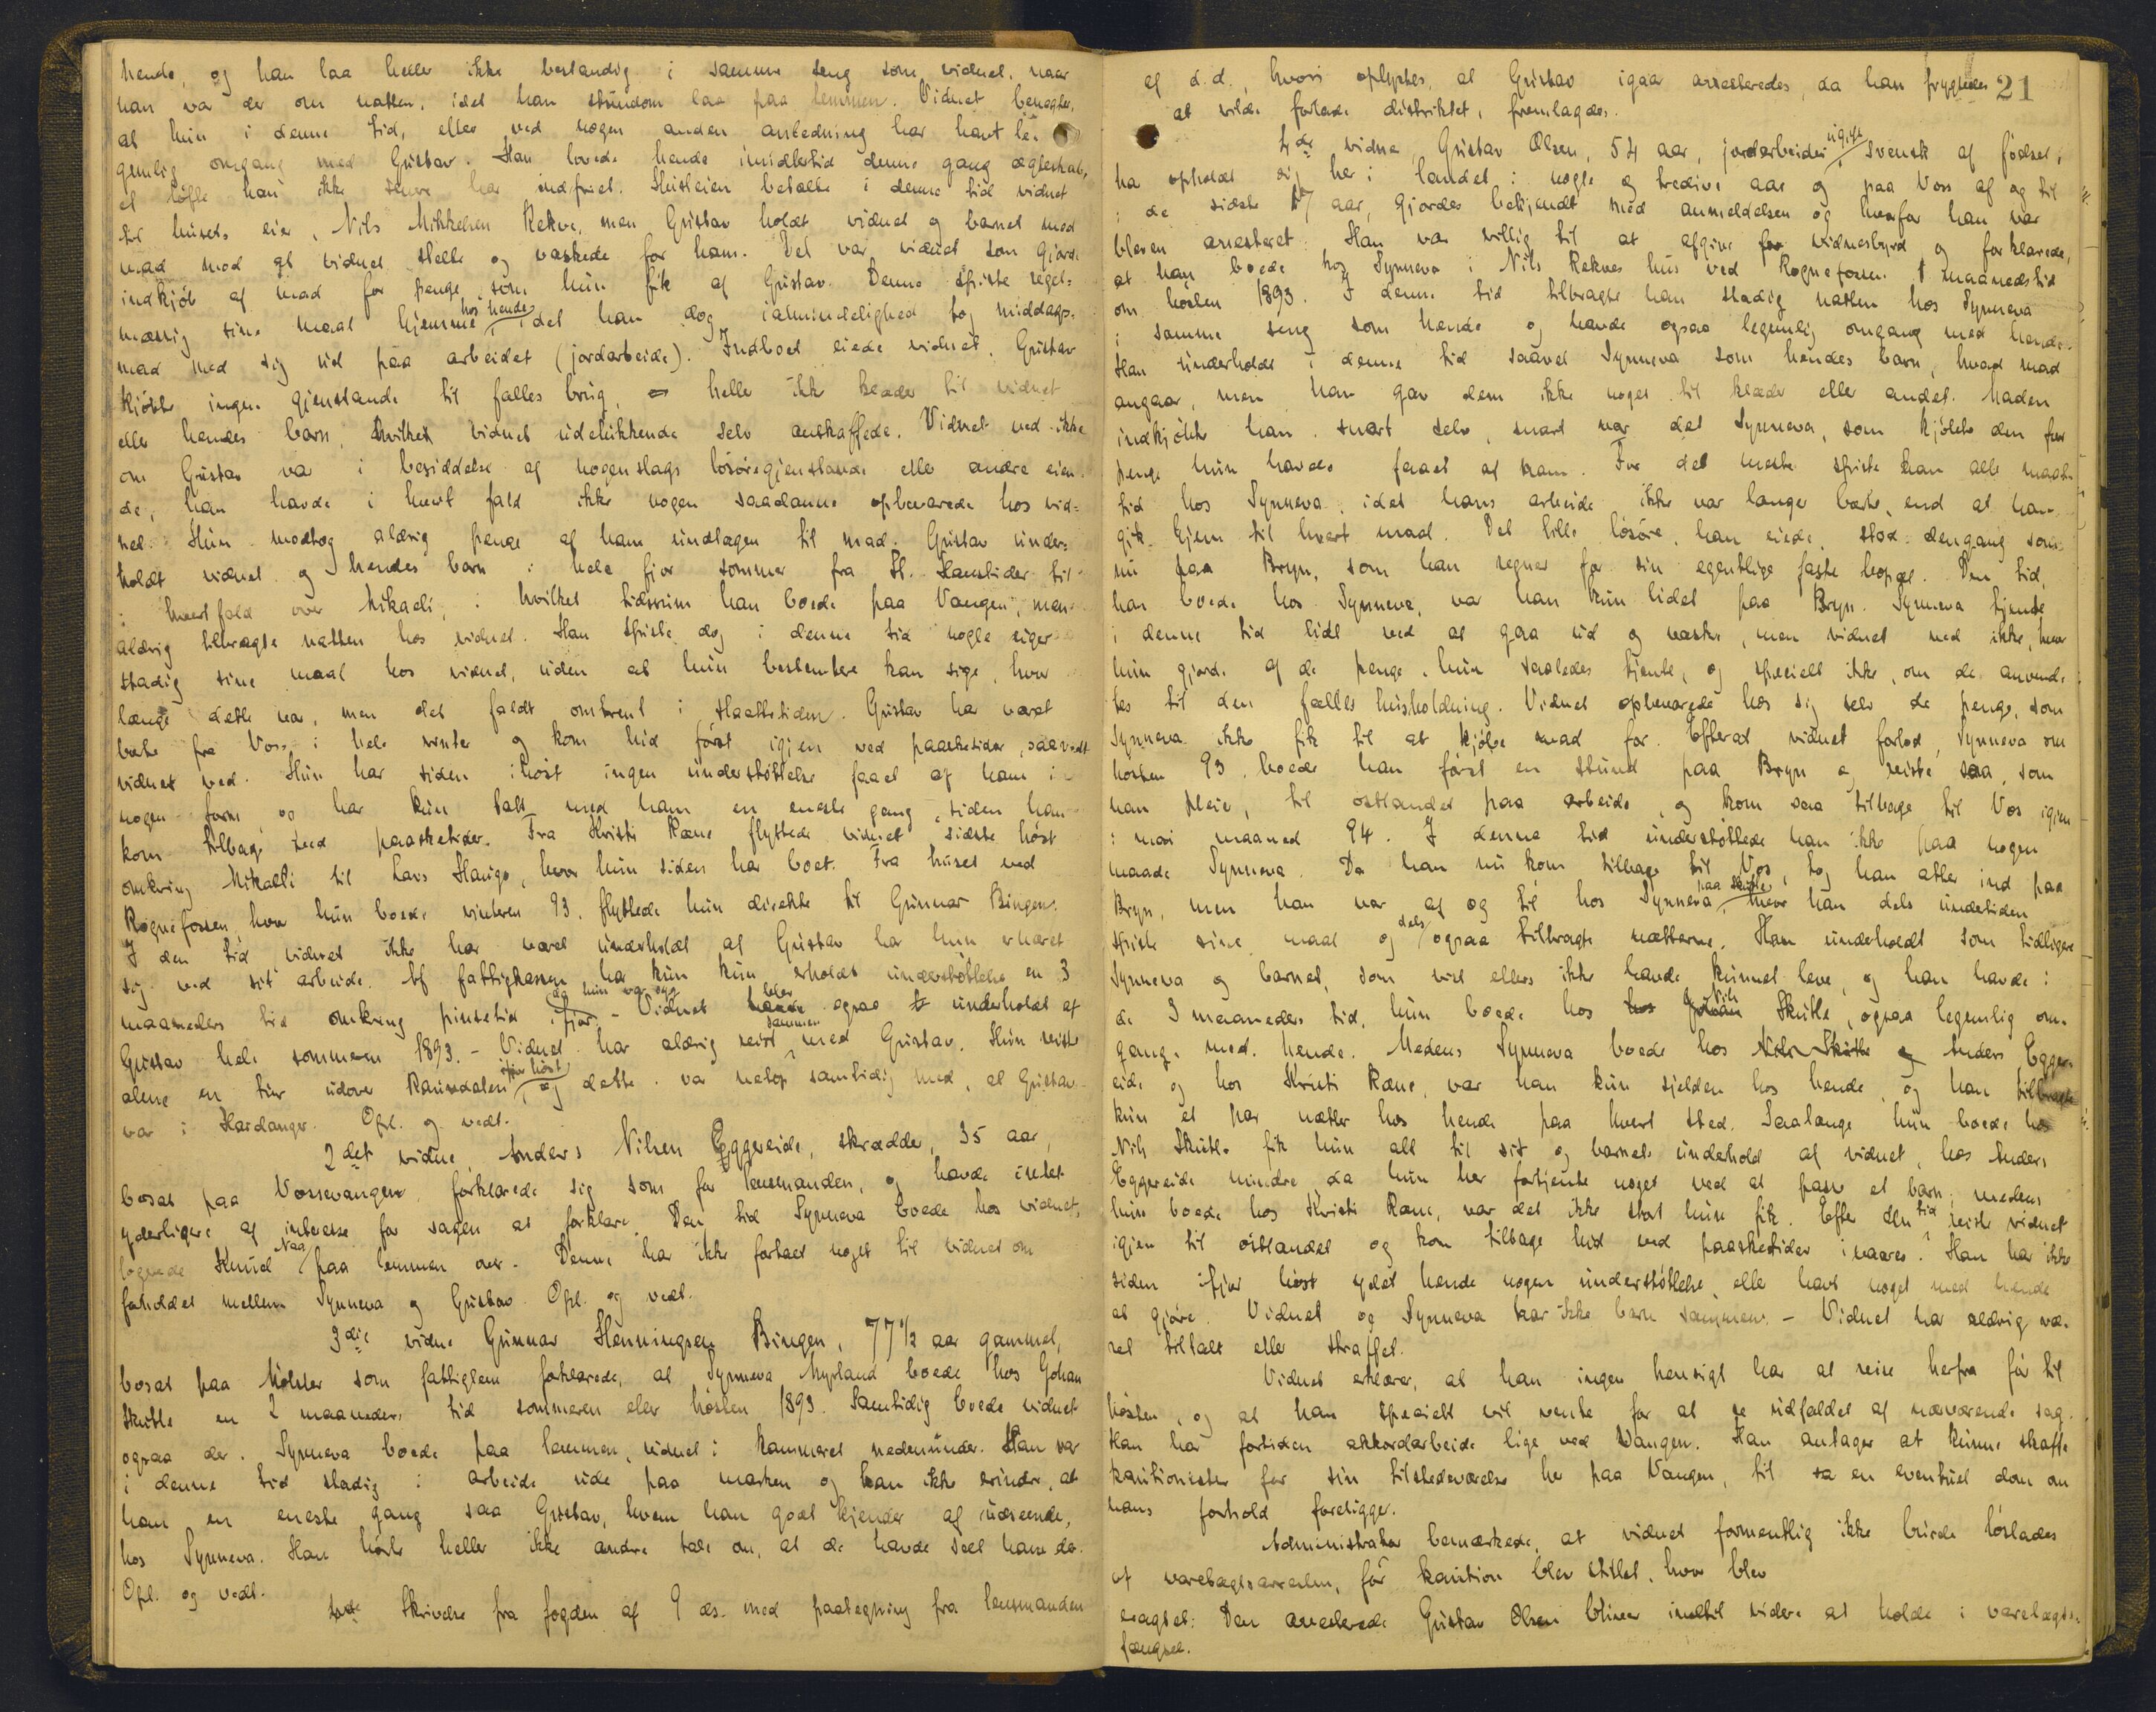 hende, og han laa heller ikke bestandig i samme seng som vidnet, naar
han var der om natten, idet han stundom laa paa lemmen. Vidnet benegter,
at hun i denne tid, eller ved nogen anden anledning har havt le-
gemlig omgang med Gustav. Han lovede hende imidlertid denne gang ægteskab,
et löfte han ikke senere har indfriet. Husleien betalte i denne tid vidnet
til husets eier, Nils Mikkelsen Rekve, men Gustav holdt vidnet og barnet med
mad mod at vidnet stelte og vaskede for ham. Det var vidnet som gjorde
indkjöb af mad for penge, som hun fik af Gustav. Denne spiste regel-
mæssig sine maal hjemme hos hende, idet han dog i almindelighed tog middags-
mad med sig ud paa arbeidet (jordarbeide). Indboet eiede vidnet. Gustav
kjöbte ingen gjenstande til fælles brug, heller ikke klæder til vidnet
eller hendes barn, hvilket vidnet udelukkende selv anskaffede. Vidnet ved ikke
om Gustav var i besiddelse af nogenslags lösöregjenstande eller andre eien-
de, han havde i hvert fald ikke nogen saadanne opbevarede hos vid-
net. Hun modtog aldrig penge af ham undtagen til mad. Gustav under-
holdt vidnet og hendes barn i hele fjor sommer fra St. Hanstider til
i hvert fald over Mikaeli, i hvilket tidsrum han boede paa Vangen, men
aldrig tilbragte natten hos vidnet. Han spiste dog i denne tid nogle uger
stadig sine maal hos vidnet, uden at hun bestemtere kan sige, hvor
længe dette var, men det faldt omtrent i slaattetiden. Gustav har været
borte fra Voss i hele vinter og kom hid först igjen ved paasketider, saavidt
vidnet ved. Hun har siden ihöst ingen understöttelse faaet af ham i
nogen form og har kun talt med ham en eneste gang, siden han
kom tilbage ved paasketider. Fra Kristi Røne flyttede vidnet sidste höst
omkring Mikaeli til Lars Hauge, hvor hun siden har boet. Fra huset ved
Rognefossen, hvor hun boede vinteren 93, flyttede hun direkte til Gunnar Bingen.
I den tid vidnet ikke har været underholdt af Gustav har hun ernæret
sig ved sit arbeide. Af fattigkassen har hun kun erholdt understöttelse en 3
maaneders tid omkring pinsetid ifjor, da hun var syg. - Vidnet blev ogsaa underholdt af
Gustav hele sommeren 1893. - Vidnet har aldrig reist sammen med Gustav. Hun reiste
alene en tur udover Raundalen ifjor höst, og dette var netop samtidig med, at Gustav
var i Hardanger. Opl. og vedt.
2det vidne, Anders Nilsen Eggereide, skrædder, 35 aar,
bosat paa Vossevangen, forklarede sig som for lensmanden, og havde intet
yderligere af interesse for sagen at forklare. Den tid Synneva boede hos vidnet,
logerede Knud paa lemmen over. Denne har ikke fortalt noget til vidnet om
forholdet mellem Synneva og Gustav. Opl. og vedt.
3die vidne Gunnar Henningsen Bingen, 77½ aar gammel,
bosat paa Mölster som fattiglem forklarede, at Synneva Myrland boede hos Johan
Skutle en 2 maaneders tid sommeren eller hösten 1893. Samtidig boede vidnet
ogsaa der. Synneva boede paa lemmen, vidnet i kammeret nedenunder. Han var
i denne tid stadig i arbeide ude paa marken og kan ikke erindre, at
han en eneste gang saa Gustav, hvem han godt kjender af udseende,
hos Synneva. Han hörte heller ikke andre tale om, at de havde seet ham der.
Opl. og vedt.
Skrivelse fra fogden af 9 ds. med paategning fra lensmanden
21
af d.d., hvori oplystes, at Gustav igaar arresteredes, da han frygtedes
at ville forlade distriktet, fremlagdes.
4de vidne, Gustav Olsen, 54 aar, jordarbeider, ugift, svensk af födsel,
har opholdt sig her i landet i nogle og tredive aar og paa Voss af og til
i de sidste 17 aar, gjordes bekjendt med anmeldelsen og hvorfor han var
bleven arresteret. Han var villig til at afgive vidnesbyrd og forklarede,
at han boede hos Synneva i Nils Rekves hus ved Rognefossen 1 maanedstid
om hösten 1893. I denne tid tilbragte han stadig natten hos Synneva
i samme seng som hende og havde ogsaa legemlig omgang med hende.
Han underholdt i denne tid saavel Synneva som hendes barn, hvad mad
angaar, men han gav dem ikke noget til klæder eller andet. Maden
indkjöbte han snart selv, snart var det Synneva, som kjöbte den for
penge hun havde faaet af ham. For det meste spiste han alle maal-
tid hos Synneva, idet hans arbeide ikke var længer borte, end at han
gik hjem til hvert maal. Det lille lösöre, han eiede, stod dengang som
nu paa Bryn, som han regner for sin egentlige faste bopæl. Den tid,
han boede hos Synneva, var han kun lidet paa Bryn. Synneva tjente
i denne tid lidt ved at gaa ud og vaske, men vidnet ved ikke, hvor
hun gjorde af de penge, hun saaledes tjente, og specielt ikke, om de anvend-
tes til den fælles husholdning. Vidnet opbevarede hos sig selv de penge, som
Synneva ikke fik til at kjöbe mad for. Efterat vidnet forlod Synneva om
hösten 93, boede han först en stund paa Bryn og reiste saa, som
han pleier, til östlandet paa arbeide, og kom saa tilbage til Vos igjen
i mai maaned 94. I denne tid understöttede han ikke paa nogen
maade Synneva. Da han nu kom tilbage til Vos, tog han atter ind paa
Bryn, men han var af og til hos Synneva paa Skutle, hvor han dels undertiden
spiste sine maal og dels ogsaa tilbragte nætterne. Han underholdt som tidligere
Synneva og barnet, som vist ellers ikke havde kunnet leve, og han havde i
de 3 maaneders tid, hun boede hos Nils Skutle, ogsaa legemlig om-
gang med hende. Medens Synneva boede hos Anders Egger-
eide og hos Kristi Røne, var han kun sjelden hos hende, og han tilbragte
kun et par nætter hos hende paa hvert sted. Saalænge hun boede hos
Nils Skutle fik hun alt til sit og barnets underhold af vidnet, hos Anders
Eggereide mindre, da hun her fortjente noget ved at passe et barn; medens
hun boede hos Kristi Røne, var det ikke stort hun fik. Efter den tid reiste vidnet
igjen til östlandet og kom tilbage hid ved paasketider i vaares. Han har ikke
siden ifjor höst ydet hende nogen understöttelse, eller havt noget med hende
at gjöre. Vidnet og Synneva har ikke barn sammen. - Vidnet har aldrig væ-
ret tiltalt eller straffet.
Vidnet erklærer, at han ingen hensigt har at reise herfra för til
hösten, og at han specielt vil vente for at se udfaldet af nærværende sag.
Han har fortiden akkordarbeide lige ved Vangen. Han antager at kunne skaffe
kautionister for sin tilstedeværelse her paa Vangen, til en eventuel dom om
hans forhold foreligger.
Administrator bemærkede, at vidnet formentlig ikke burde löslades
af varetægtsarresten, för kaution blev stillet, hvor blev
eragtet: Den arresterede Gustav Olsen bliver indtil videre at holde i varetægts-
fængsel.